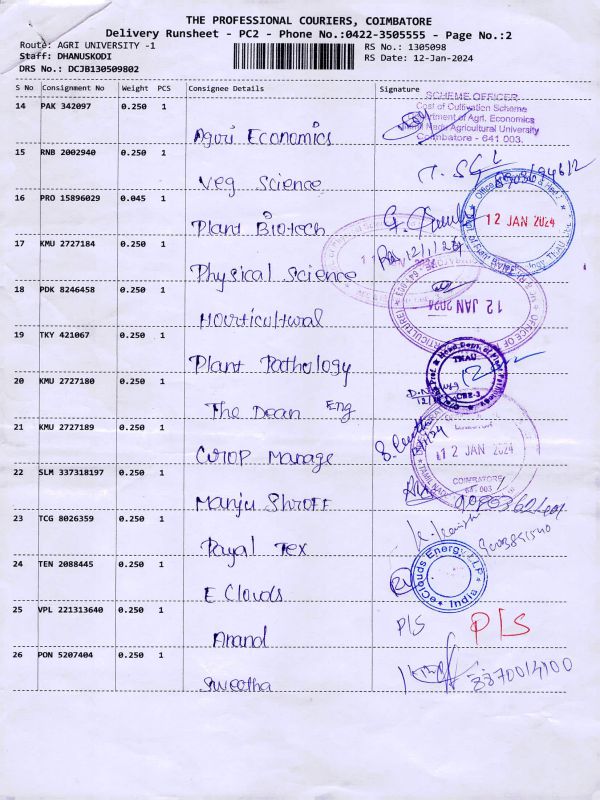 THE PROFESSIONAL COURIERS, COIMBATORE
Delivery Runsheet - PC2 - Phone No.:0422-3505555 - Page No.:2
Route: AGRI UNIVERSITY -1
RS No.: 1305098
Staff: DHANUSKODI
RS Date: 12-Jan-2024
DRS No.: DCJB130509802
S No Consignment No Weight PCS Consignee Details Signature
14 PAK 342097 0.250 1
Agri. Economics
SCHEME OFFICER
Cost of Cultivation Scheme
Department of Agri. Economics
Tamil Nadu Agricultural University
Coimbatore - 641 003.
15 RNB 2002940 0.250 1
Veg Science
16 PRO 15896029 0.045 1
Plant Biotech
12 JAN 2024
17 KMU 2727184 0.250 1
Physical Science
12/1/24
18 PDK 8246458 0.250 1
Hourticultural
12 JAN 2024
19 TKY 421067 0.250 1
Plant Pathology
TNAU
CBE-3
20 KMU 2727180 0.250 1
The Dean Eng
21 KMU 2727189 0.250 1
Crop Manage
12 JAN 2024
COIMBATORE
22 SLM 337318197 0.250 1
Manju Shroff
23 TCG 8026359 0.250 1
Payal Tex
24 TEN 2088445 0.250 1
E Clouds
eClouds Energy LLP
India
25 VPL 221313640 0.250 1
Anand
P/S P/S
26 PON 5207404 0.250 1
Swetha